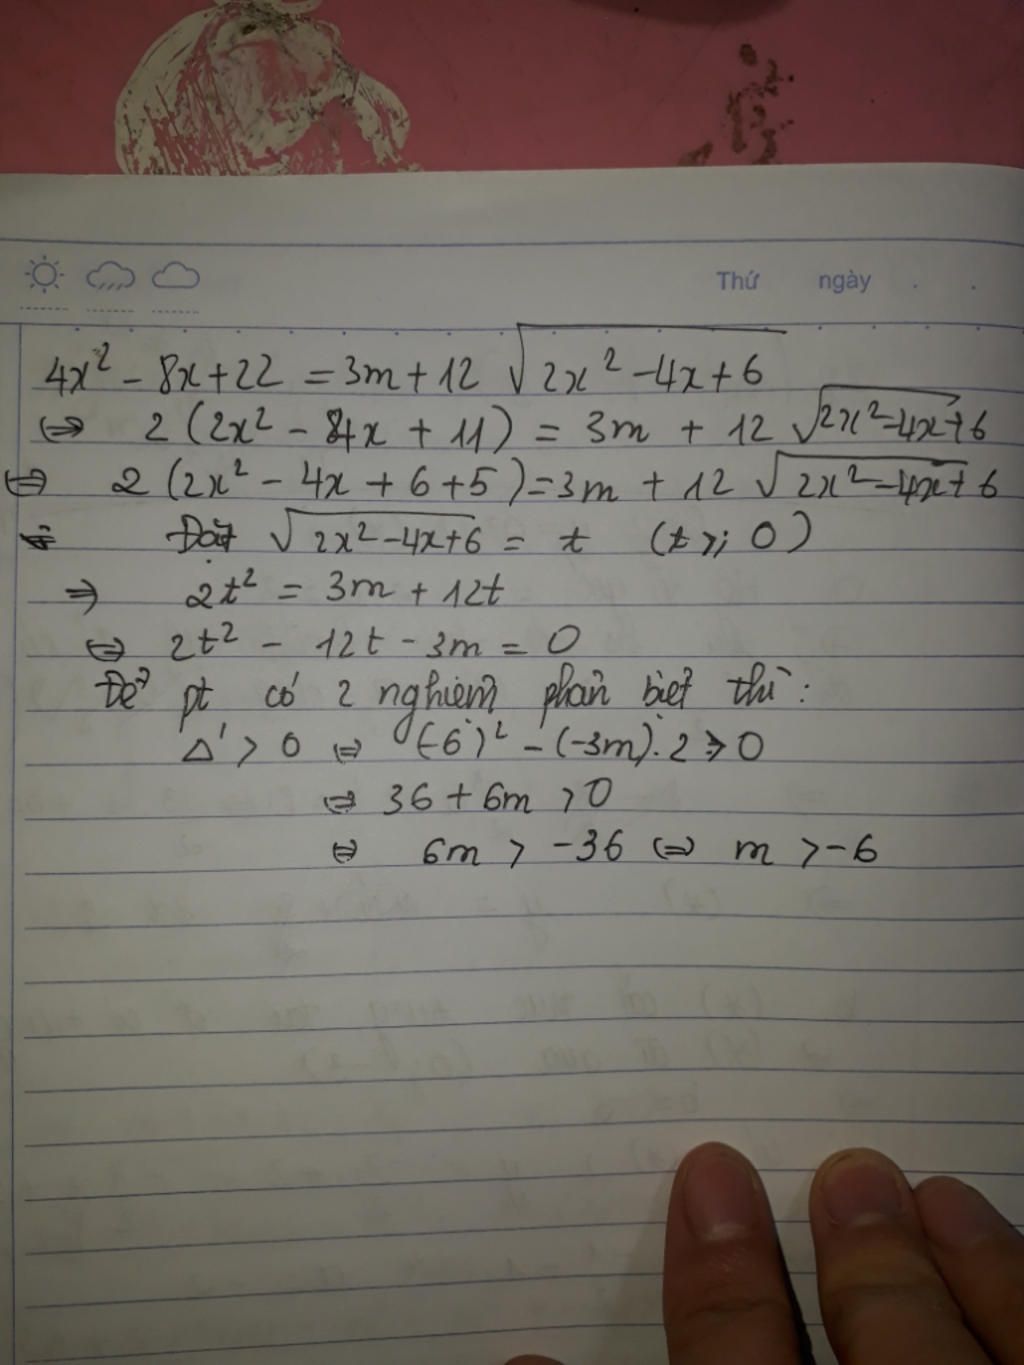 Thứ ngày . .
4x² - 8x + 22 = 3m + 12 √(2x² - 4x + 6)
⇔ 2 (2x² - 4x + 11) = 3m + 12 √(2x² - 4x + 6)
⇔ 2 (2x² - 4x + 6 + 5) = 3m + 12 √(2x² - 4x + 6)
Đặt √(2x² - 4x + 6) = t (t ≥ 0)
⇒ 2t² = 3m + 12t
⇔ 2t² - 12t - 3m = 0
Để pt có 2 nghiệm phân biệt thì:
Δ' > 0 ⇔ (-6)² - (-3m).2 > 0
⇔ 36 + 6m > 0
⇔ 6m > -36 ⇔ m > -6